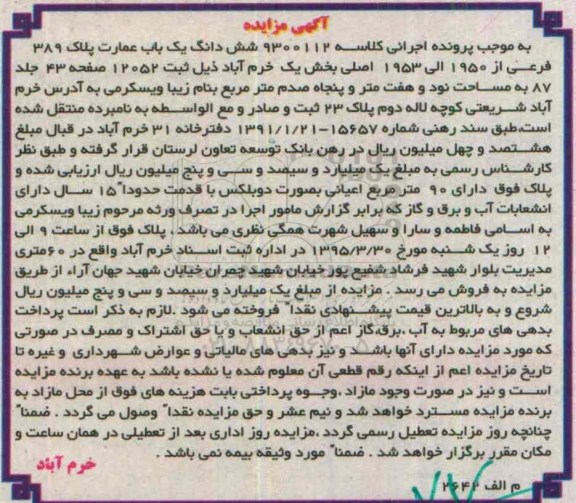 آگهی مزایده
به موجب پرونده اجرائی کلاسه ۹۳۰۰۱۱۲ شش دانگ یک باب عمارت پلاک ۳۸۹
فرعی از ۱۹۵۰ الی ۱۹۵۳ اصلی بخش یک خرم آباد ذیل ثبت ۱۲۰۵۲ صفحه ۴۳ جلد
۸۷ به مساحت نود و هفت متر و پنجاه صدم متر مربع بنام زیبا ویسکرمی به آدرس خرم
آباد شریعتی کوچه لاله دوم پلاک ۲۳ ثبت و صادر و مع الواسطه به نامبرده منتقل شده
است،طبق سند رهنی شماره ۱۵۶۵۷-۱۳۹۱/۱/۲۱ دفترخانه ۳۱ خرم آباد در قبال مبلغ
هشتصد و چهل میلیون ریال در رهن بانک توسعه تعاون لرستان قرار گرفته و طبق نظر
کارشناس رسمی به مبلغ یک میلیارد و سیصد و سی و پنج میلیون ریال ارزیابی شده و
پلاک فوق دارای ۹۰ متر مربع اعیانی بصورت دوبلکس با قدمت حدودا"۱۵ سال دارای
انشعابات آب و برق و گاز که برابر گزارش مامور اجرا در تصرف ورثه مرحوم زیبا ویسکرمی
به اسامی فاطمه و سارا و سهیل شهرت همگی نظری می باشد . پلاک فوق از ساعت ۹ الی
۱۲ روز یک شنبه مورخ ۱۳۹۵/۳/۳۰ در اداره ثبت اسناد خرم آباد واقع در ۶۰متری
مدیریت بلوار شهید فرشاد شفیع پور خیابان شهید چمران خیابان شهید جهان آراء از طریق
مزایده به فروش می رسد . مزایده از مبلغ یک میلیارد و سیصد و سی و پنج میلیون ریال
شروع و به بالاترین قیمت پیشنهادی نقدا" فروخته می شود .لازم به ذکر است پرداخت
بدهی های مربوط به آب ،برق،گاز اعم از حق انشعاب و یا حق اشتراک و مصرف در صورتی
که مورد مزایده دارای آنها باشد و نیز بدهی های مالیاتی و عوارض شهرداری و غیره تا
تاریخ مزایده اعم از اینکه رقم قطعی آن معلوم شده یا نشده باشد به عهده برنده مزایده
است و نیز در صورت وجود مازاد ،وجوه پرداختی بابت هزینه های فوق از محل مازاد به
برنده مزایده مسترد خواهد شد و نیم عشر و حق مزایده نقدا" وصول می گردد . ضمنا"
چنانچه روز مزایده تعطیل رسمی گردد ،مزایده روز اداری بعد از تعطیلی در همان ساعت و
مکان مقرر برگزار خواهد شد . ضمنا" مورد وثیقه بیمه نمی باشد .
خرم آباد
م الف ۲۶۴۲